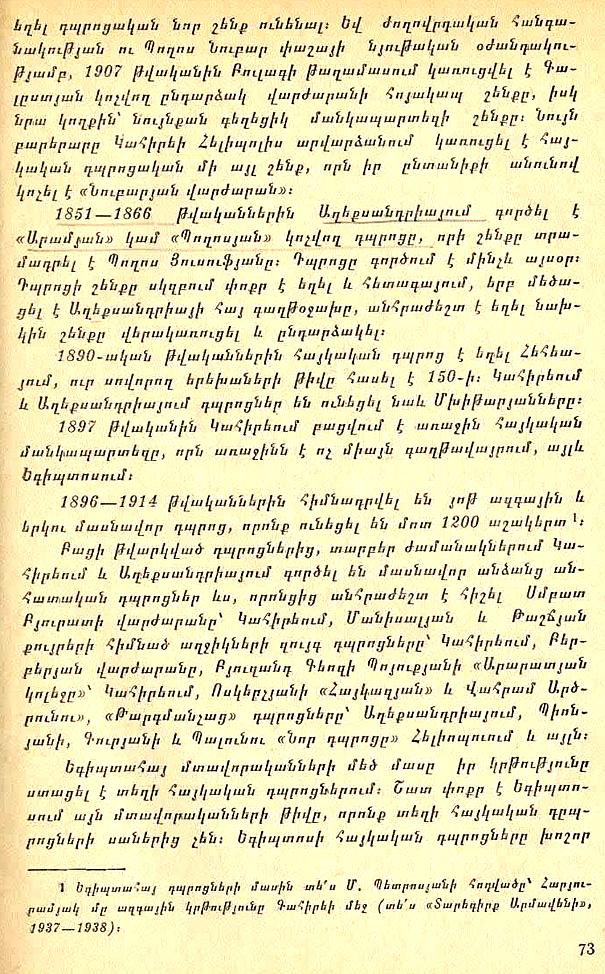 եղել դպրոցական նոր շենք ունենալ։ Եվ ժողովրդական հանգա-
նակության ու Պողոս Նուբար փաշայի նյութական օժանդակու-
թյամբ, 1907 թվականին Բուլաղի թաղամասում կառուցվել է Գա-
լըստյան կոչվող ընդարձակ վարժարանի հոյակապ շենքը, իսկ
նրա կողքին՝ նույնքան գեղեցիկ մանկապարտեզի շենքը։ Նույն
բարերարը Կահիրեի Հելիպոլիս արվարձանում կառուցել է հայ-
կական դպրոցական մի այլ շենք, որն իր ընտանիքի անունով
կոչել է «Նուբարյան վարժարան»։
1851—1866 թվականներին Աղեքսանդրիայում գործել է
«Արամյան» կամ «Պողոսյան» կոչվող դպրոցը, որի շենքը տրա-
մադրել է Պողոս Յուսուֆյանը։ Դպրոցը գործում է մինչև այսօր։
Դպրոցի շենքը սկզբում փոքր է եղել և հետագայում, երբ մեծա-
ցել է Աղեքսանդրիայի հայ գաղթօջախը, անհրաժեշտ է եղել նախ-
կին շենքը վերակառուցել և ընդարձակել։
1890-ական թվականներին հայկական դպրոց է եղել Հեհեա-
յում, ուր սովորող երեխաների թիվը հասել է 150-ի։ Կահիրեում
և Աղեքսանդրիայում դպրոցներ են ունեցել նաև Մխիթարյանները։
1897 թվականին Կահիրեում բացվում է առաջին հայկական
մանկապարտեզը, որն առաջինն է ոչ միայն գաղթավայրում, այլև
Եգիպտոսում։
1896—1914 թվականներին հիմնադրվել են յոթ ազգային և
երկու մասնավոր դպրոց, որոնք ունեցել են մոտ 1200 աշակերտ ¹։
Բացի թվարկված դպրոցներից, տարբեր ժամանակներում Կա-
հիրեում և Աղեքսանդրիայում գործել են մասնավոր անձանց ան-
հատական դպրոցներ ևս, որոնցից անհրաժեշտ է հիշել Սմբատ
Բյուրատի վարժարանը՝ Կահիրեում, Մանիսալյան և Թաշճյան
քույրերի հիմնած աղջիկների զույգ դպրոցները՝ Կահիրեում, Բեր-
բերյան վարժարանը, Բյուզանդ Գեոզի Պոյուքյանի «Արարատյան
կոլեջը»՝ Կահիրեում, Ոսկերչյանի «Հայկազյան» և Վահրամ Արծ-
րունու, «Թարգմանչաց» դպրոցները՝ Աղեքսանդրիայում, Պիոն-
յանի, Գուրյանի և Պալունու «Նոր դպրոցը» Հելիոպոսում և այլն։
Եգիպտահայ մտավորականների մեծ մասը իր կրթությունը
ստացել է տեղի հայկական դպրոցներում։ Շատ փոքր է Եգիպտո-
սում այն մտավորականների թիվը, որոնք տեղի հայկական դըպ-
րոցների սաներից չեն։ Եգիպտոսի հայկական դպրոցները խոշոր
1 Եգիպտահայ դպրոցների մասին տե՛ս Մ. Պետրոսյանի հոդվածը՝ Հարյու-
րամյակ մը ազգային կրթությունը Գահիրեի մեջ (տե՛ս «Տարեգիրք Արմավենի»,
1937—1938)։
73